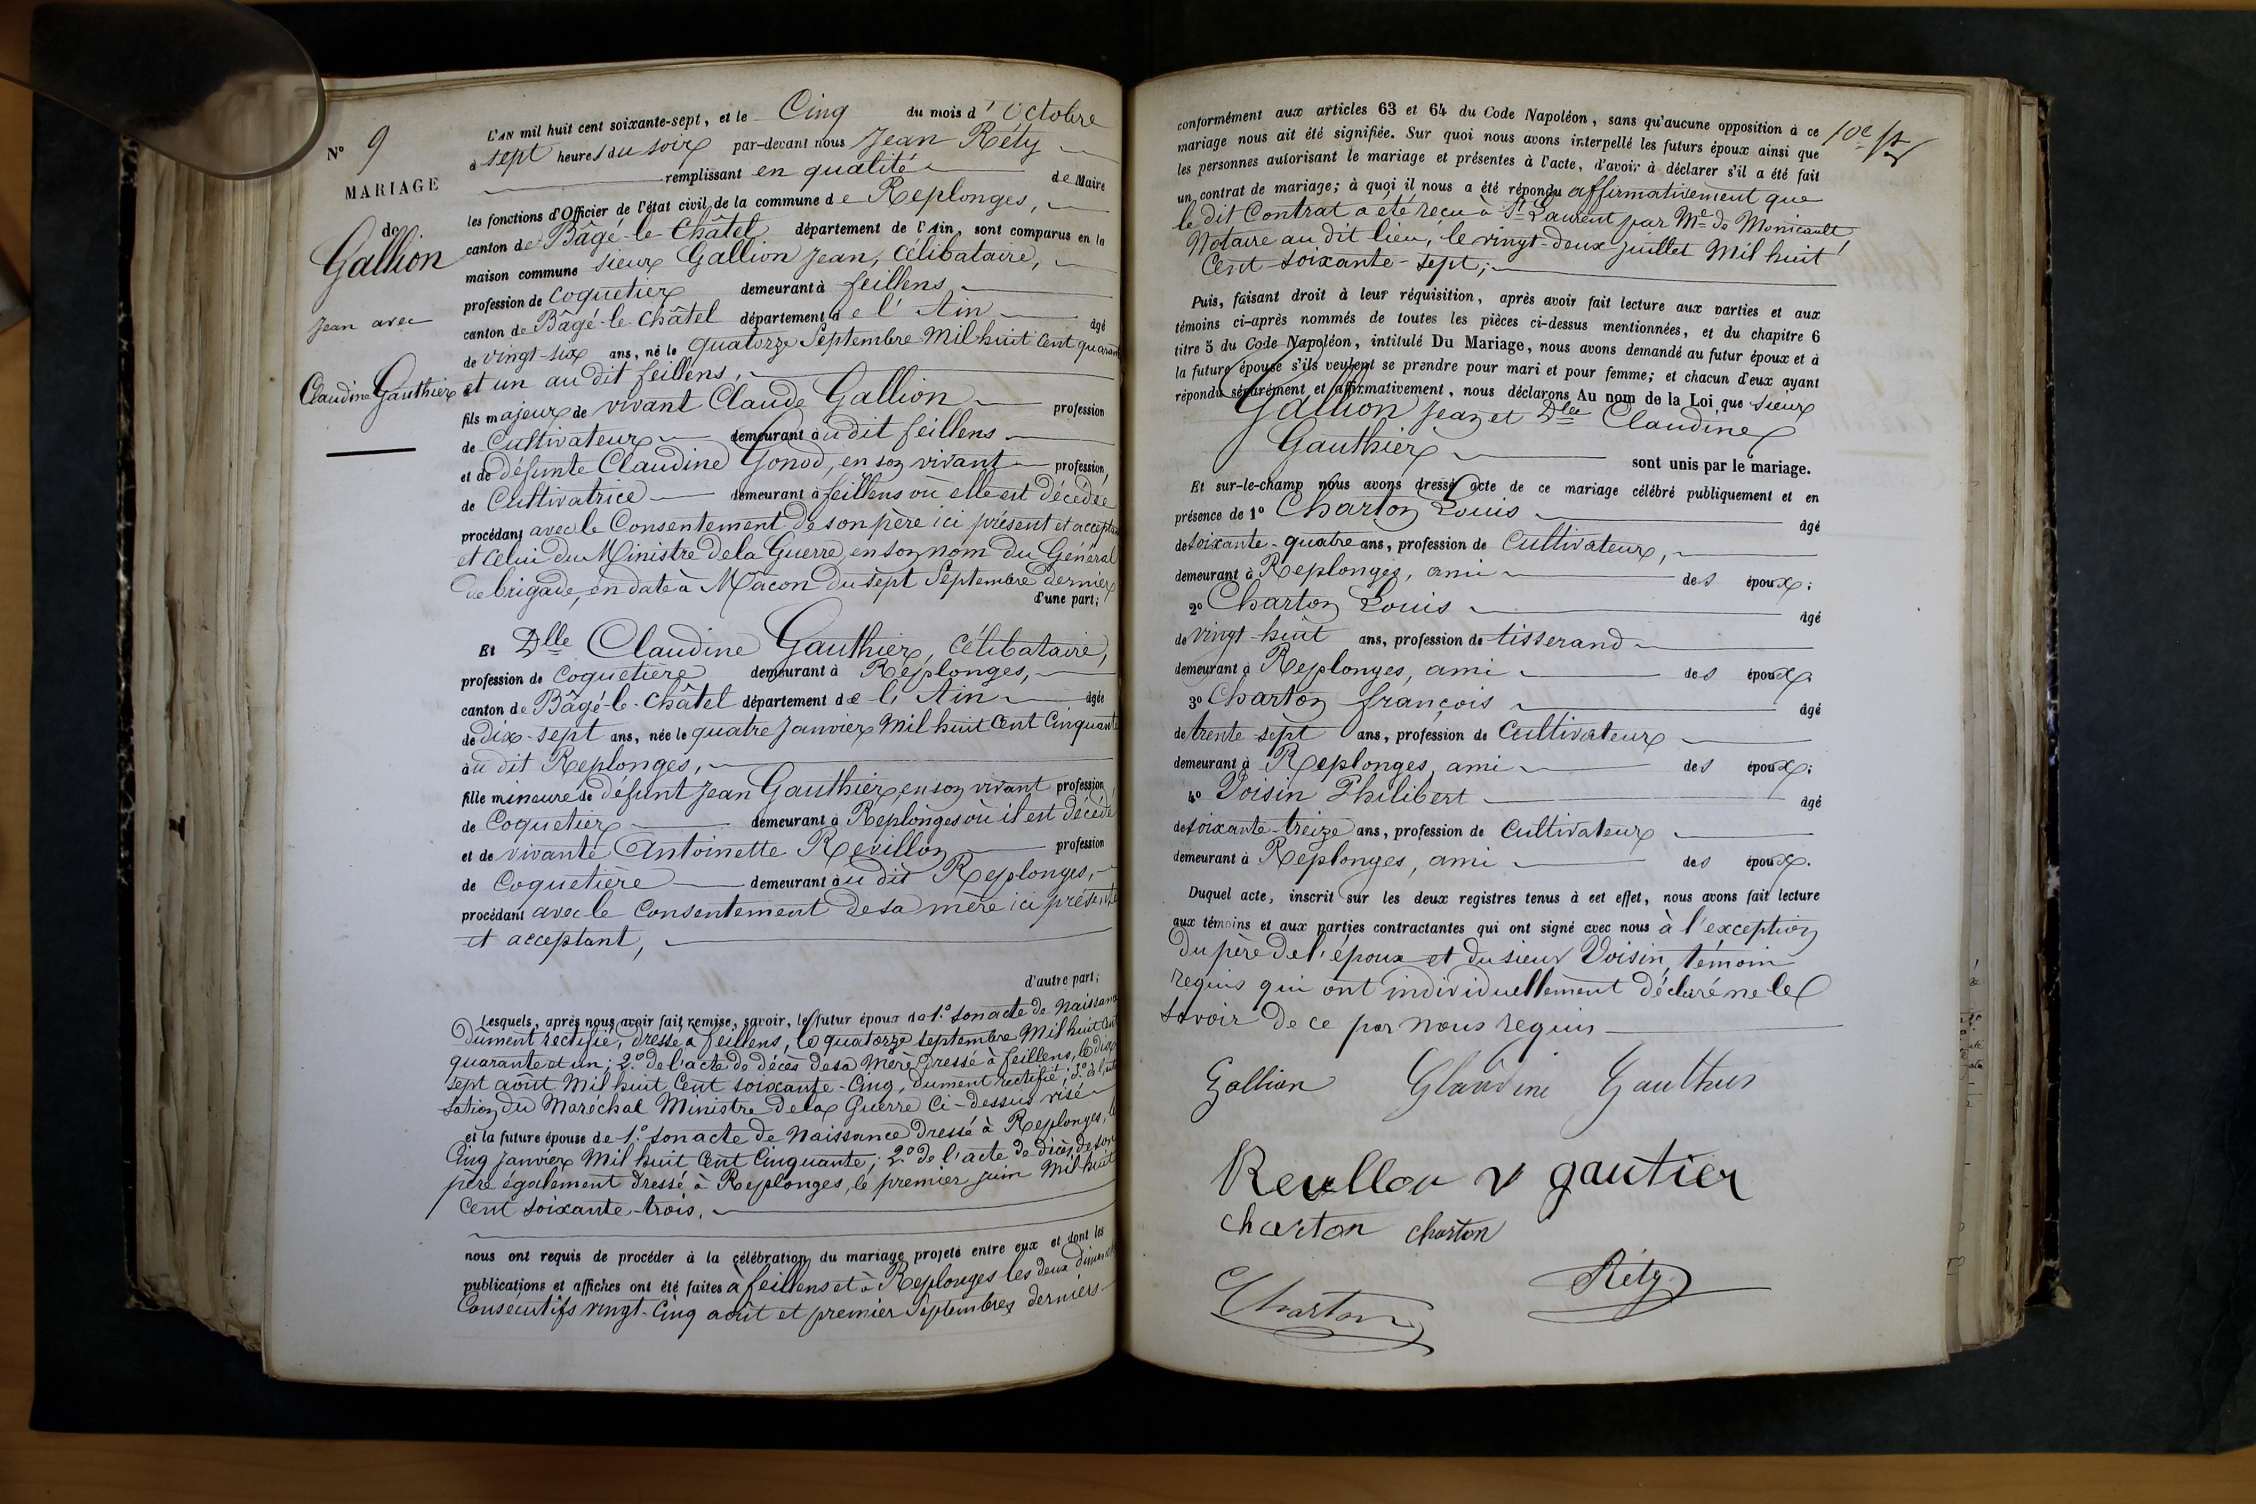 N° 9
MARIAGE
de
Gallion
Jean avec
Claudine Gauthier
L'AN mil huit cent soixante-sept, et le Cinq du mois d'Octobre
à sept heures du soir par-devant nous Jean Réty
remplissant en qualité de Maire
les fonctions d'Officier de l'état civil de la commune de Replonges,
canton de Bâgé-le-Châtel département de l'Ain, sont comparus en la
maison commune sieur Gallion Jean, Célibataire,
profession de Coquetier demeurant à feillens
canton de Bâgé-le-Châtel département de l'Ain âgé
de vingt-six ans, né le quatorze Septembre Mil huit Cent quarante
et un au dit feillens,
fils majeur de vivant Claude Gallion profession
de Cultivateur demeurant au dit feillens
et de défunte Claudine Gonod, en son vivant profession,
de Cultivatrice demeurant à feillens où elle est décédée
procédant avec le Consentement de son père ici présent et acceptant
et celui du Ministre de la Guerre, en son nom du Général
de brigade, en date à Mâcon du sept Septembre dernier
d'une part;
Et Dlle Claudine Gauthier, Célibataire,
profession de Coquetière demeurant à Replonges,
canton de Bâgé-le-Châtel département de l'Ain âgée
de dix-sept ans, née le quatre Janvier Mil huit Cent Cinquante
au dit Replonges,
fille mineure de défunt Jean Gauthier, en son vivant profession
de Coquetier demeurant à Replonges où il est décédé
et de vivante Antoinette Revillon profession
de Coquetière demeurant au dit Replonges,
procédant avec le Consentement de sa mère ici présente
et acceptant,
d'autre part;
Lesquels, après nous avoir fait remise, savoir, le futur époux de 1.° son acte de Naissance
Dûment rectifié, dressé à feillens, le quatorze septembre Mil huit Cent
quarante et un; 2.° de l'acte de décès de sa Mère dressé à feillens, le dix
sept août Mil huit Cent soixante-Cinq, dument rectifié; 3.° de l'auto
sation du Maréchal Ministre de la Guerre Ci-dessus visé
et la future épouse de 1.° son acte de Naissance dressé à Replonges, le
Cinq Janvier Mil huit Cent Cinquante; 2.° de l'acte de décès de son
père également dressé à Replonges, le premier Juin Mil huit
Cent soixante-trois,
nous ont requis de procéder à la célébration du mariage projeté entre eux et dont les
publications et affiches ont été faites à feillens et à Replonges les deux dimanches
Consécutifs vingt-Cinq août et premier Septembres derniers
conformément aux articles 63 et 64 du Code Napoléon, sans qu'aucune opposition à ce
mariage nous ait été signifiée. Sur quoi nous avons interpellé les futurs époux ainsi que
les personnes autorisant le mariage et présentes à l'acte, d'avoir à déclarer s'il a été fait
un contrat de mariage; à quoi il nous a été répondu affirmativement que
le dit Contrat a été reçu à St Laurent par Me de Monicault
Notaire au dit lieu, le vingt-deux Juillet Mil huit
Cent-soixante-sept;
Puis, faisant droit à leur réquisition, après avoir fait lecture aux parties et aux
témoins ci-après nommés de toutes les pièces ci-dessus mentionnées, et du chapitre 6
titre 5 du Code Napoléon, intitulé Du Mariage, nous avons demandé au futur époux et à
la future épouse s'ils veulent se prendre pour mari et pour femme; et chacun d'eux ayant
répondu séparément et affirmativement, nous déclarons Au nom de la Loi que sieur
Gallion Jean et Dlle Claudine
Gauthier
sont unis par le mariage.
Et sur-le-champ nous avons dressé acte de ce mariage célébré publiquement et en
présence de 1° Charton Louis âgé
de soixante-quatre ans, profession de Cultivateur,
demeurant à Replonges, ami des époux;
2° Charton Louis âgé
de vingt-huit ans, profession de tisserand
demeurant à Replonges, ami des époux
3° Charton françois âgé
de trente-sept ans, profession de Cultivateur
demeurant à Replonges ami des époux;
4° Voisin Philibert âgé
de soixante-treize ans, profession de Cultivateur
demeurant à Replonges, ami des époux.
Duquel acte, inscrit sur les deux registres tenus à cet effet, nous avons fait lecture
aux témoins et aux parties contractantes qui ont signé avec nous à l'exception
du père de l'époux et du sieur Voisin, témoin
requis qui ont individuellement déclaré ne le
savoir de ce par nous requis
Gallion Glaudine Gauthier
Revllon v gautier
charton charton
Charton Réty